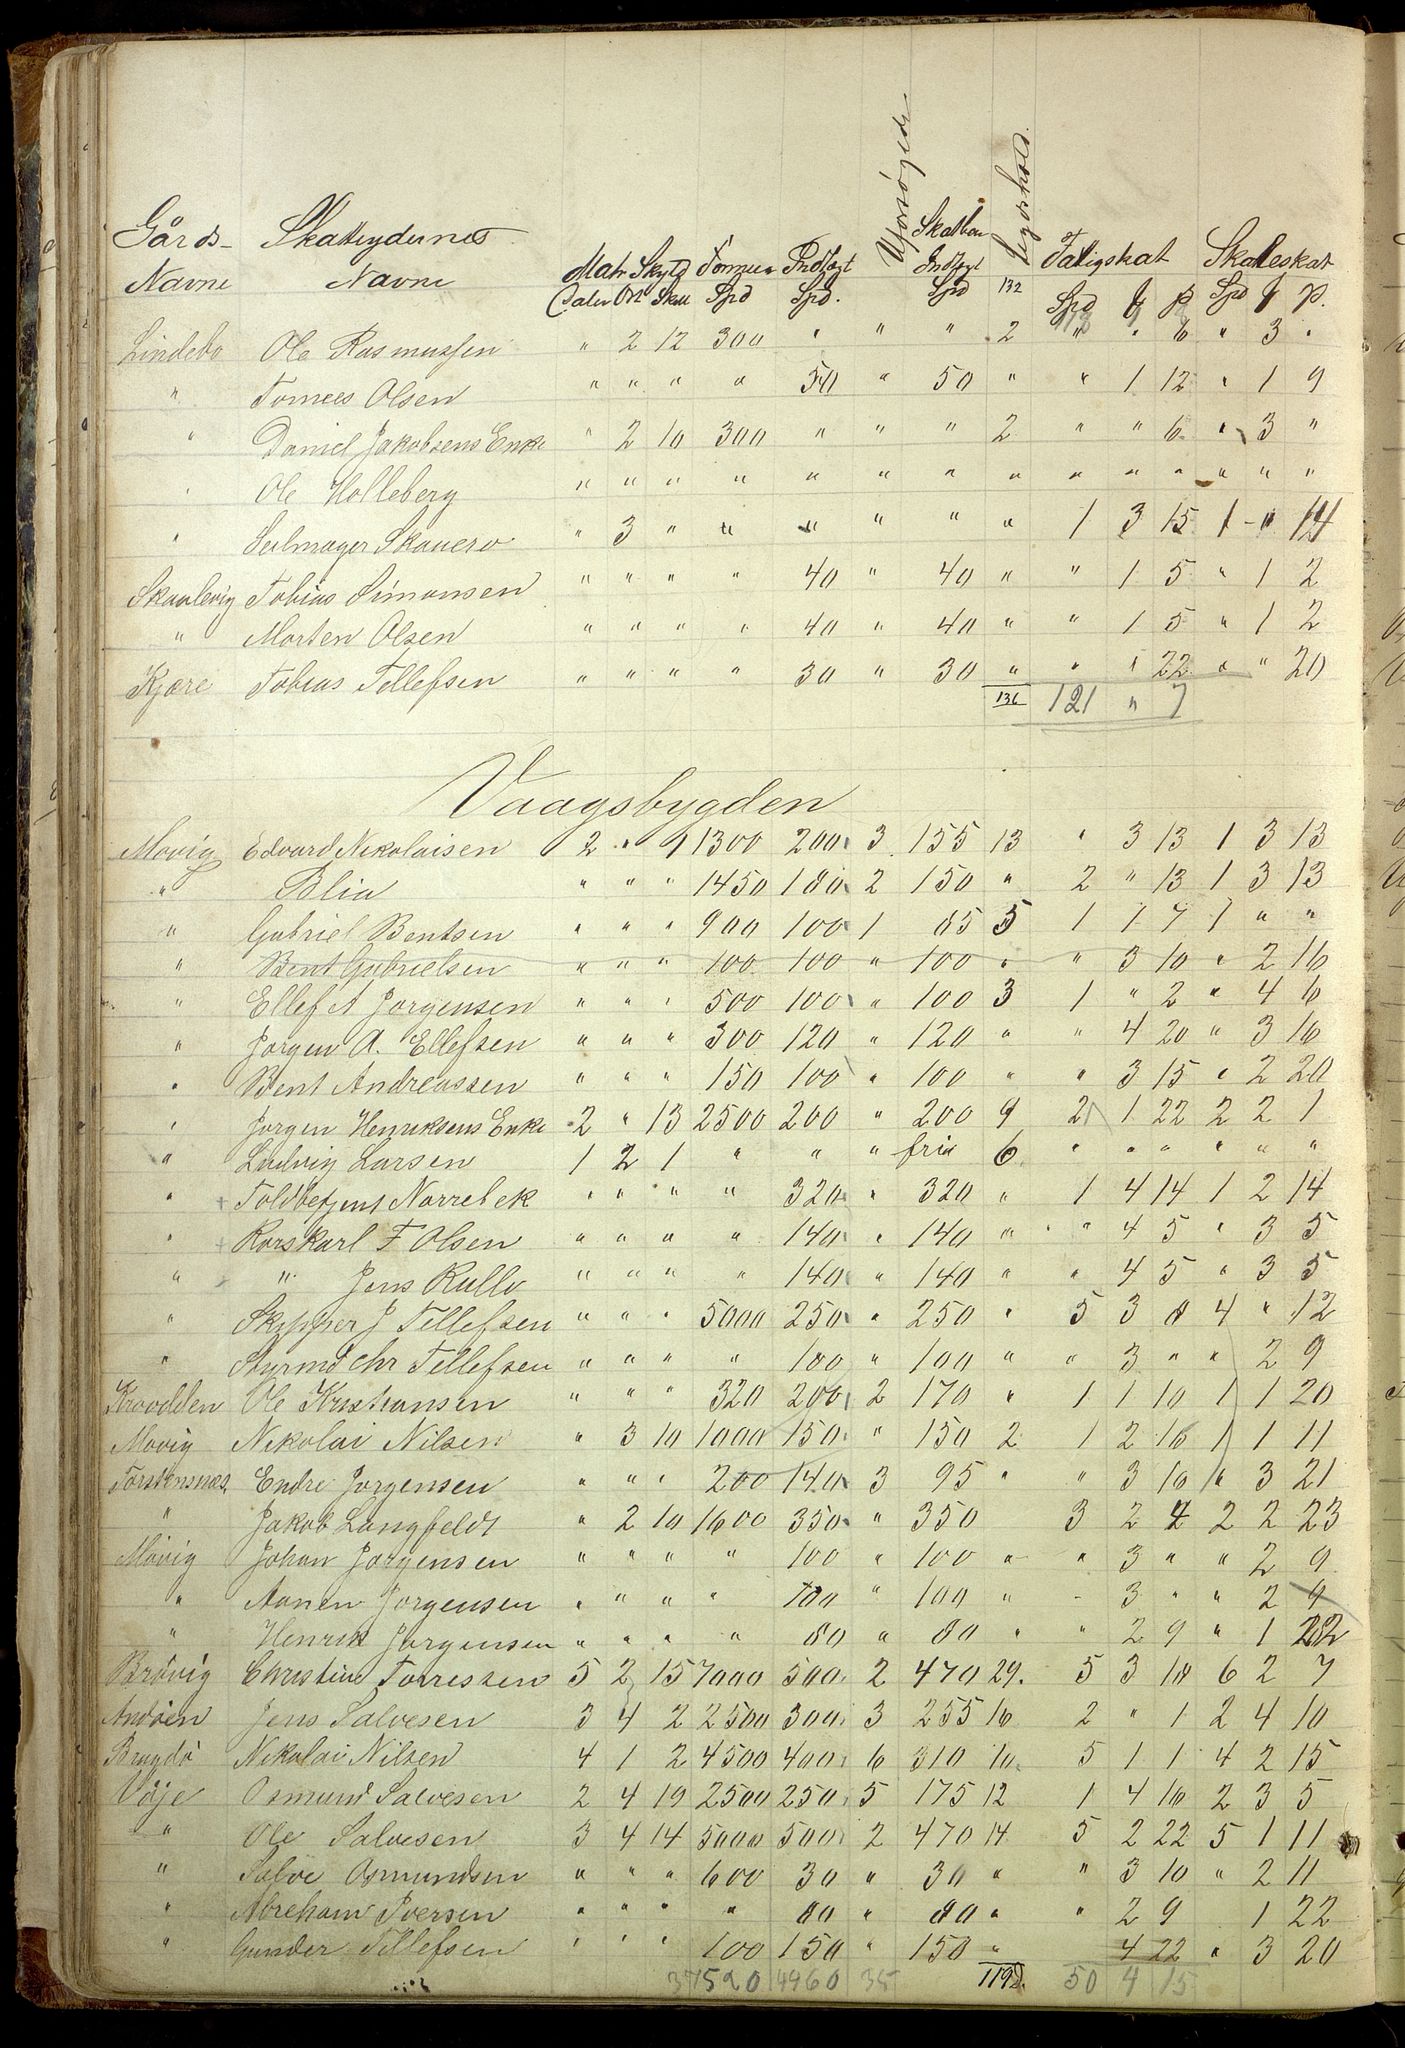 Gårds- Skatteydernes Uforsørgede Skatbar
Navne Navne Matr Skyld Formue Indtægt Indtægt Fattigskat Skoleskat
Daler Ort Skill Spd Spd. Spd 132 Spd Spd
Lindebo Ole Rasmussen " 2 12 300 " " " 2 " " 6 " 3 "
" Tomees Olsen " " " " 50 " 50 " " 1 12 " 1 9
" Daniel Jakobsens Enke " 2 10 300 " " " 2 " " 6 " 3 "
" Ole Holleberg " " " " " " " " " " " " " "
" Seilmager Skauero " 3 " " " " " " 1 3 15 1 " 14
Skaalevig Tobias Simonsen " " " " 40 " 40 " " 1 5 " 1 2
" Morten Olsen " " " " 40 " 40 " " 1 5 " 1 2
Kjære Tobias Tellefsen " " " " 30 " 30 " " " 22 " " 20
136 121 " 7
Vaagsbygden
Movig Edvard Nikolaisen 2 " 9 1300 200 3 155 13 " 3 13 1 3 13
" Blia " " " 1450 180 2 150 " 2 " 13 1 3 13
" Gabriel Bentsen " " " 900 100 1 85 5 1 1 7 1 " "
" Bent Gabrielsen " " " 100 100 " 100 " " 3 10 " 2 16
" Ellef A Jorgensen " " " 500 100 " 100 3 1 " 2 " 4 6
" Jorgen A. Ellefsen " " " 300 120 " 120 " " 4 20 " 3 16
" Bent Andreassen " " " 150 100 " 100 " " 3 15 " 2 20
" Jorgen Henriksens Enke 2 " 13 2500 200 " 200 9 2 1 22 2 2 1
" Ludvig Larsen 1 2 1 " " " fri 6 " " " " " "
" Toldbetjent Norrebek " " " " 320 " 320 " 1 4 14 1 2 14
" Rorskarl F Olsen " " " " 140 " 140 " " 4 5 " 3 5
" " Jens Rullo " " " " 140 " 140 " " 4 5 " 3 5
" Skipper J Tellefsen " " " 5000 250 " 250 " 5 3 8 4 " 12
" Styrmd Chr Tellefsen " " " " 100 " 100 " " 3 " " 2 9
Kroodden Ole Kristiansen " " " 320 200 2 170 " 1 1 10 1 1 20
Movig Nikolai Nilsen " 3 10 1000 150 " 150 2 1 2 16 1 1 11
Torstensnæs Endre Jorgensen " " " 200 140 3 95 " " 3 10 " 3 21
" Jakob Langfeldt " 2 10 1600 350 " 350 3 2 4 2 2 23
Movig Johan Jorgensen " " " " 100 " 100 " " 3 " " 2 9
" Aanen Jorgensen " " " " 100 " 100 " - 3 " " 2 9
" Henrik Jorgensen " " " " 80 " 80 " " 2 9 " 1 22
Brøvig Christian Torressen 5 2 15 7000 500 2 470 29. 5 3 18 6 2 7
Andøen Jens Salvesen 3 4 2 2500 300 3 255 16 2 " 1 2 4 10
Bragdø Nikolai Nilsen 4 1 2 4500 400 6 310 10 5 1 1 4 2 15
Vøje Osmund Salvesen 2 4 19 2500 250 5 175 12 1 4 16 2 3 5
" Ole Salvesen 3 4 14 5000 500 2 470 14 5 2 22 5 1 11
" Salve Osmundsen " " " 600 30 " 30 " " 3 10 " 2 11
" Abraham Iversen " " " " 80 " 80 " " 2 9 1 22
" Gunder Tellefsen " " " 100 150 " 150 " 4 22 " 3 20
37520 4960 35 119 50 4 15